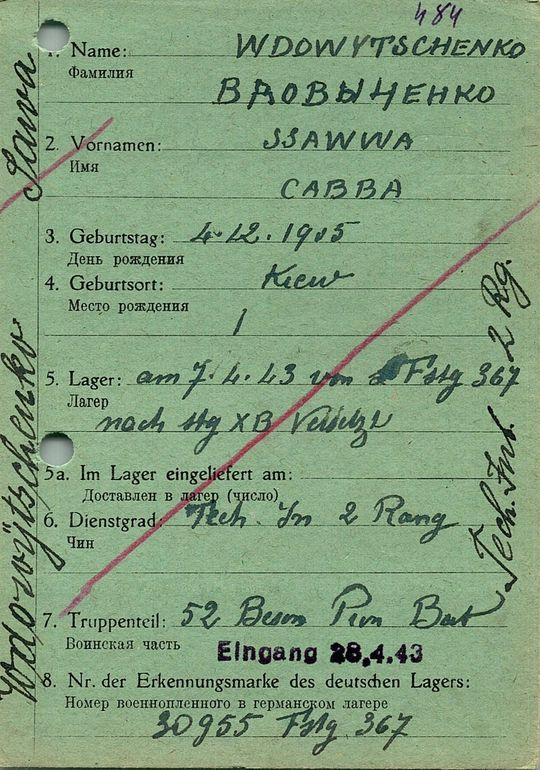 484
1. Name: WDOWYTSCHENKO
Фамилия
ВДОВЫЧЕНКО
2. Vornamen: SSAWWA
Имя
САВВА
3. Geburtstag: 4.12.1905
День рождения
4. Geburtsort: Kiew
Место рождения
5. Lager: am 7.4.43 von Fstg 367
Лагер
nach Stg XB Versetzt
5a. Im Lager eingeliefert am:
Доставлен в лагер (число)
6. Dienstgrad: Tech. In 2 Rang
Чин
7. Truppenteil: 52 Beson Pion Bat
Воинская часть
Eingang 28.4.43
8. Nr. der Erkennungsmarke des deutschen Lagers:
Номер военнопленного в германском лагере
30955 Fstg 367
Wdowytschenko Sawa
Tech. Int. 2 Rg.